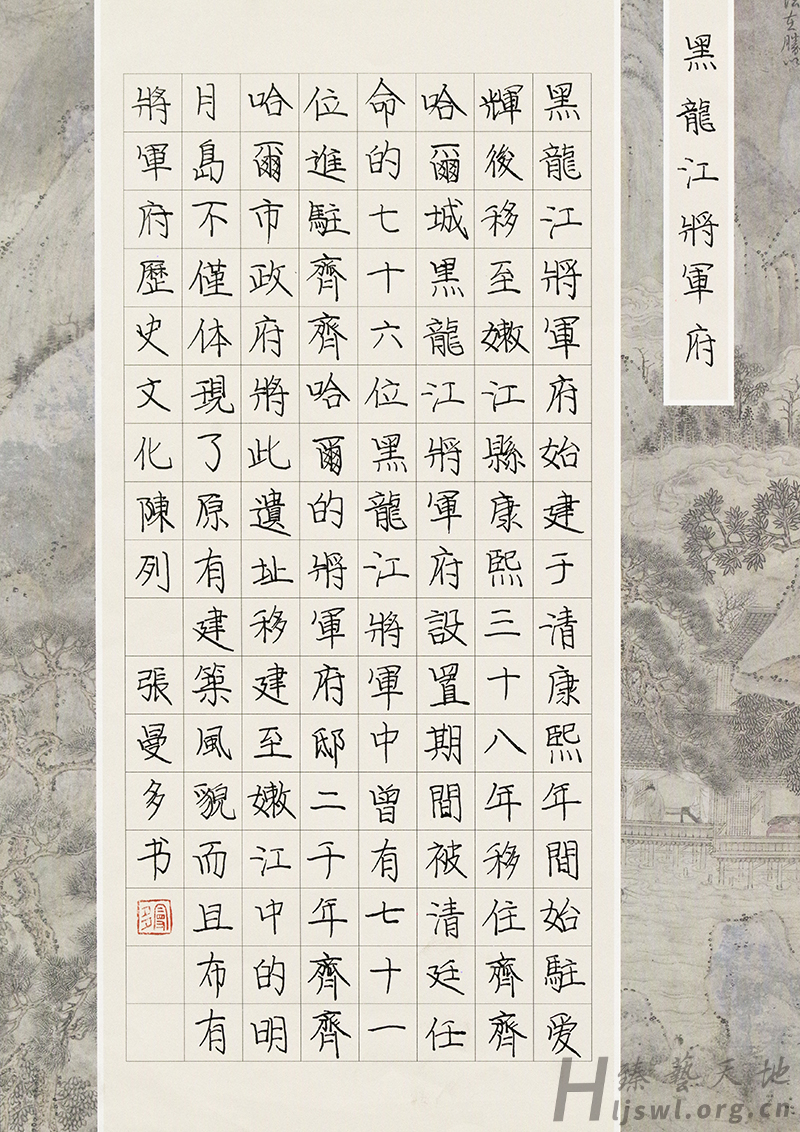 黑龍江將軍府
黑龍江將軍府始建于清康熙年間始駐爱
輝後移至嫩江縣康熙三十八年移住齊齊
哈爾城黑龍江將軍府設置期間被清廷任
命的七十六位黑龍江將軍中曾有七十一
位進駐齊齊哈爾的將軍府邸二千年齊齊
哈爾市政府將此遺址移建至嫩江中的明
月島不僅体現了原有建築風貌而且布有
將軍府歷史文化陳列 張曼多书
曼多
臻藝天地
Hljswl.org.cn